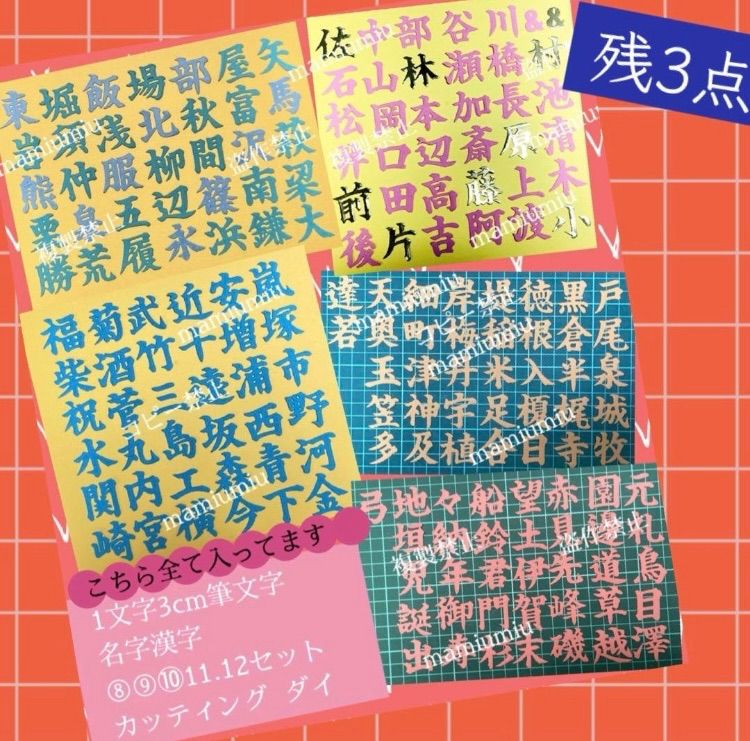 残3点
東堀飯場部屋矢
浅北秋富馬
熊仲服柳間沢萩
栗泉五辺篠南梁
勝荒履永浜鎌大
佐中部谷川&&
石山林瀬橋村
松岡本加長池
井口辺斎原清
前田高藤上木
後片吉阿渡小
福菊武近安嵐
柴酒竹千増塚
祝菅三遠浦市
水丸島坂西野
関内工森青河
崎宮横今下金
達天細岸堤徳黒戸
若奥町梅稲根倉尾
玉津丹米入半泉
笠神宇足榎梶城
多及植合日寺牧
弓地々船望赤園元
垣納鈴土見札
児年君伊先道鳥
誕御門賀峰草目
出寿杉末磯越澤
こちら全て入ってます
1文字3cm筆文字
名字漢字
⑧⑨⑩11.12セット
カッティング ダイ
mamiumiu
盗作禁止
複製禁止
mamiumiu
mamiumiu
複製禁止
mamiumiu
mamiumiu
コピー禁止
mamiumiu
コピー禁止
mamiumiu
複製禁止
盗作禁止
mamiumiu